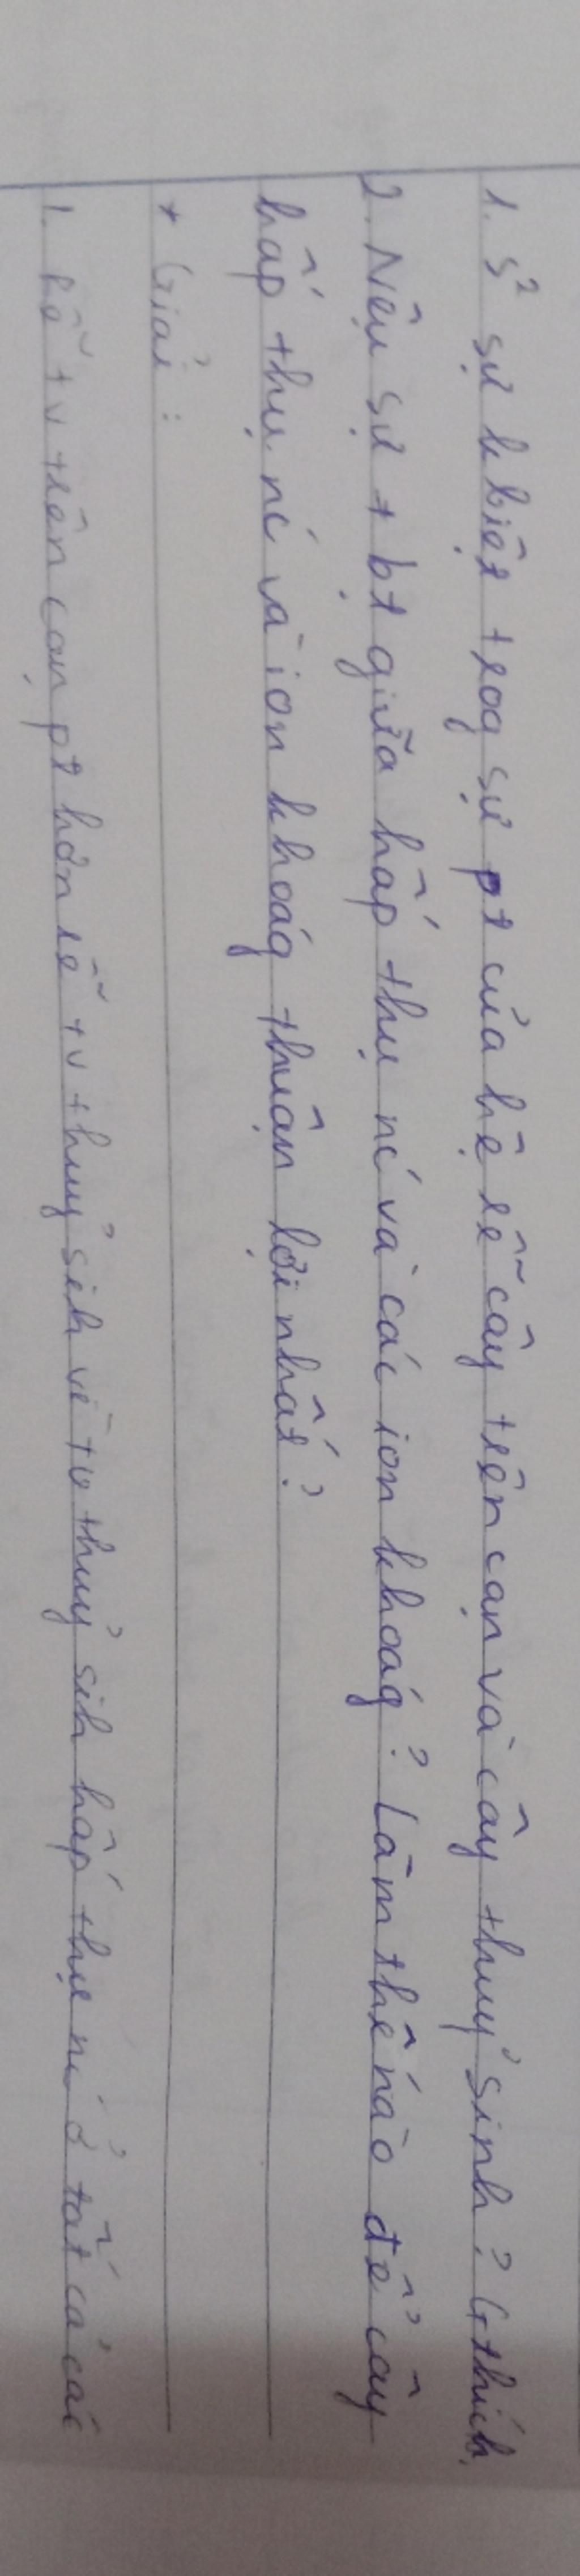 1. S² sự kbiệt trog sự pt của hệ rễ cây trên cạn và cây thuỷ sinh? Gthích.
2. Nêu sự + bt giữa hấp thụ nć và các ion khoág? Làm thế nào để cây
hấp thụ nć và ion khoág thuận lợi nhất?
* Giải:
1. Rễ tv trên cạn pt hơn rễ tv thuỷ sih vì tv thuỷ sih hấp thụ nć ở tất cả các